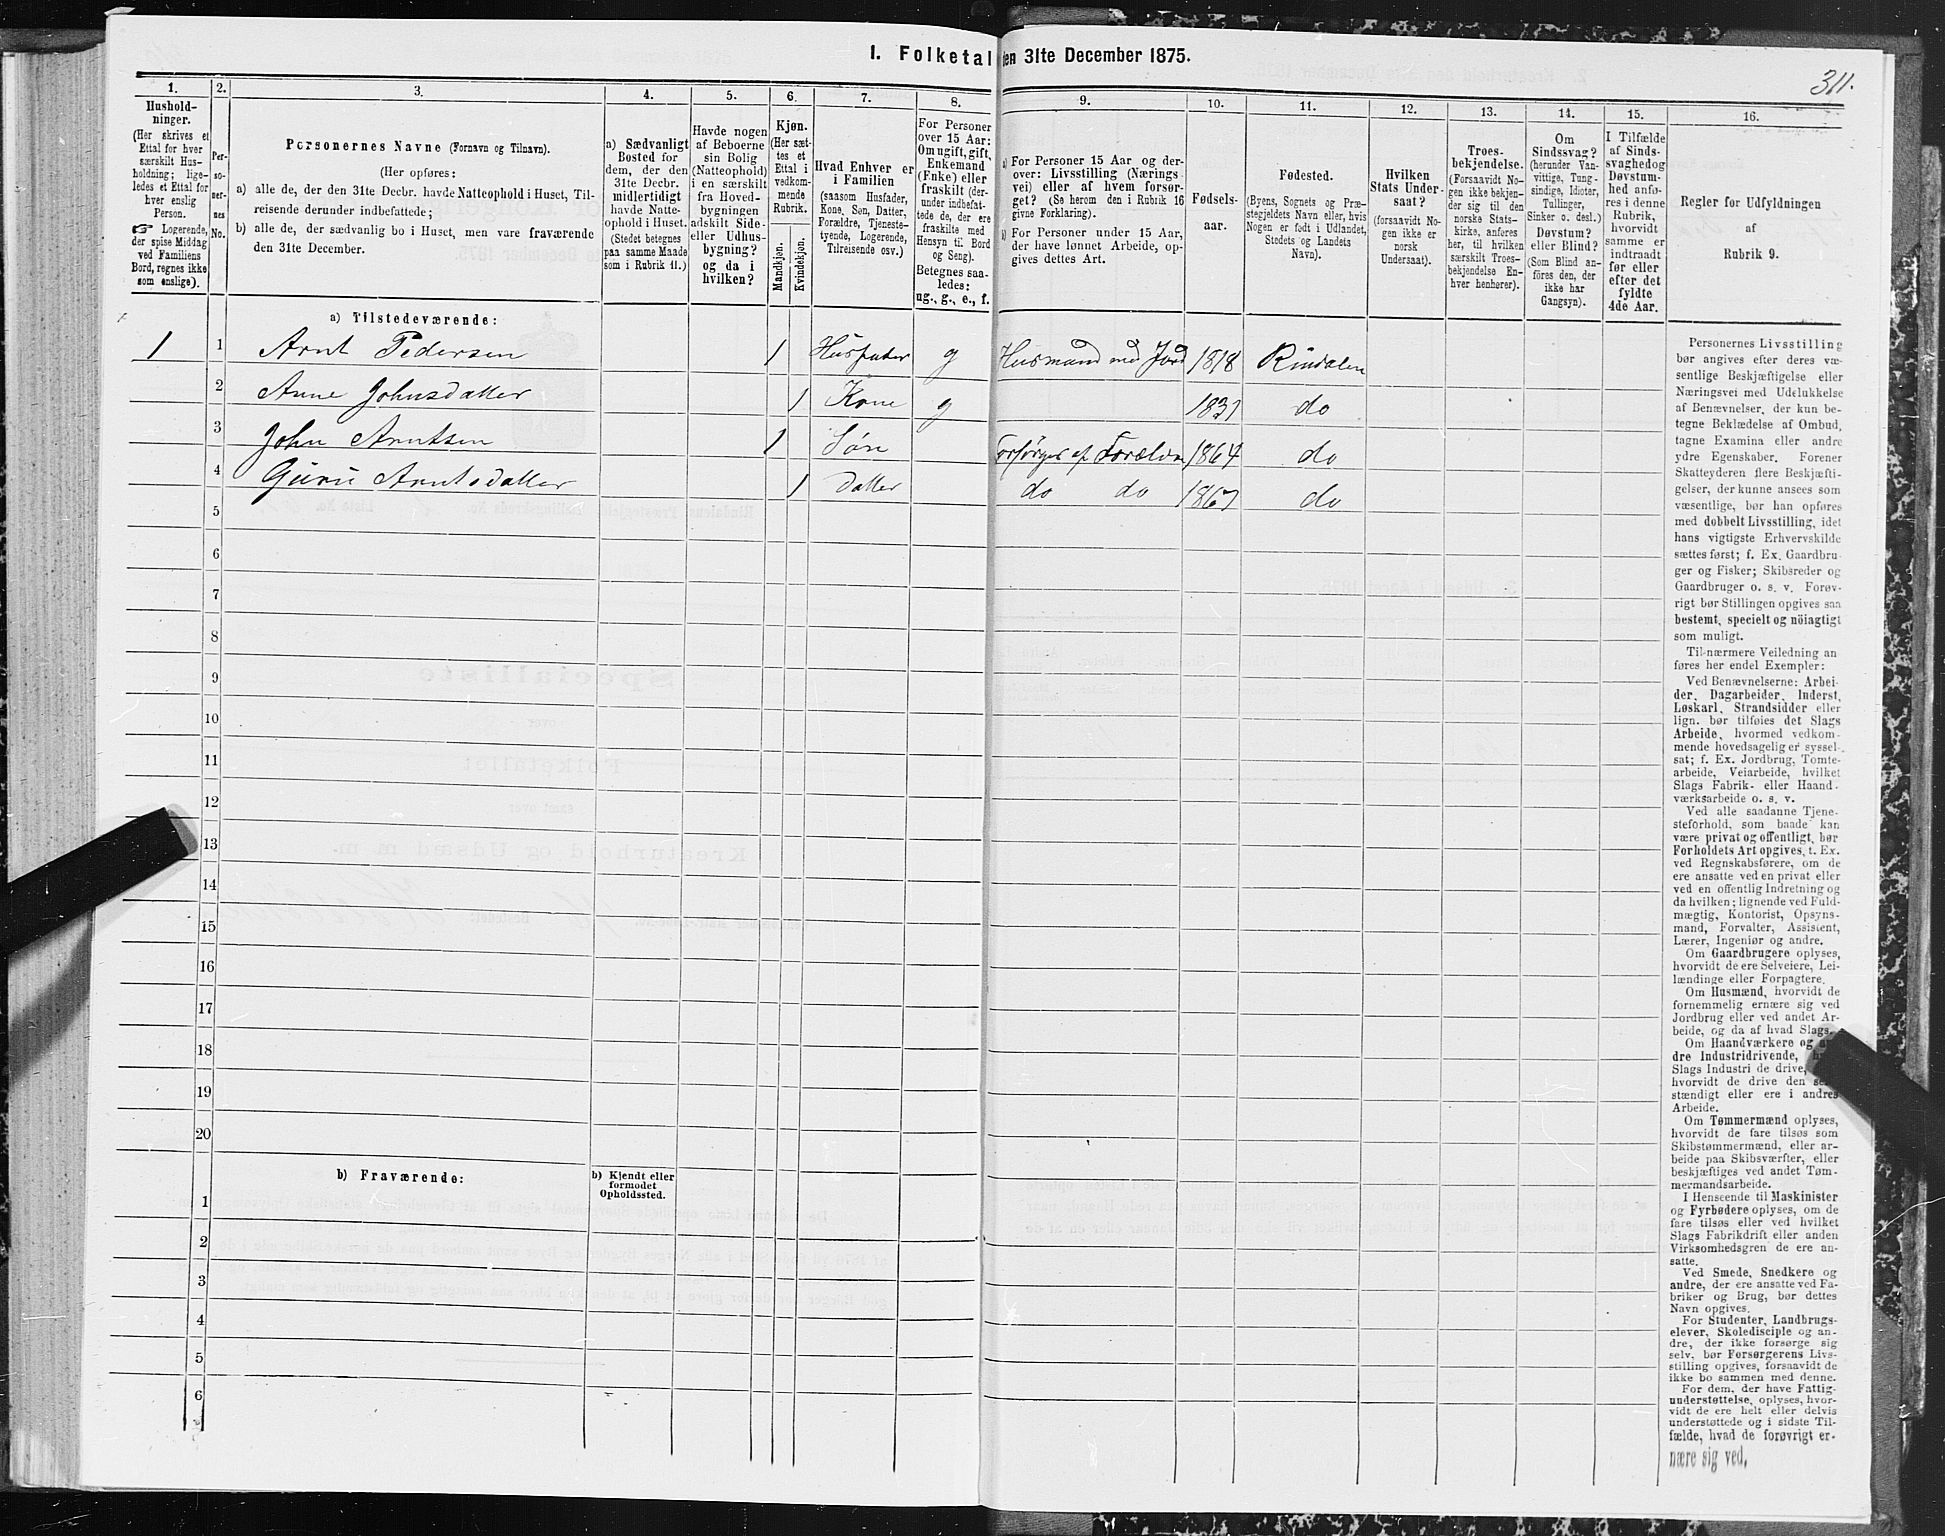 I. Folketal den 31te December 1875.
311.
1.
Hushold-
ninger.
(Her skrives et
Ettal for hver
særskilt Hus-
holdning; lige-
ledes et Ettal for
hver enslig
Person.
☞ Logerende,
der spise Middag
ved Familiens
Bord, regnes ikke
som enslige).
2.
Per-
so-
ner-
nes
No.
3.
Personernes Navne (Fornavn og Tilnavn).
(Her opføres:
a) alle de, der den 31te Decbr. havde Natteophold i Huset, Til-
reisende derunder indbefattede;
b) alle de, der sædvanlig bo i Huset, men vare fraværende
den 31te December.
4.
a) Sædvanligt
Bosted for
dem, der den
31te Decbr.
midlertidigt
havde Natte-
ophold i Huset.
(Stedet betegnes
paa samme Maade
som i Rubrik 11.)
5.
Havde nogen
af Beboerne
sin Bolig
(Natteophold)
i en særskilt
fra Hoved-
bygningen
adskilt Side-
eller Udhus-
bygning?
og da i
hvilken?
6.
Kjøn.
(Her sæt-
tes et
Ettal i
vedkom-
mende
Rubrik.
Mandkjøn.
Kvindekjøn.
7.
Hvad Enhver er
i Familien
(saasom Husfader,
Kone, Søn, Datter,
Forældre, Tjeneste-
tyende, Logerende,
Tilreisende osv.)
8.
For Personer
over 15 Aar:
Om ugift, gift,
Enkemand
(Enke) eller
fraskilt (der-
under indbefat-
tede de, der ere
fraskilte med
Hensyn til Bord
og Seng).
Betegnes saa-
ledes:
ug., g., e., f.
9.
a) For Personer 15 Aar og der-
over: Livsstilling (Nærings-
vei) eller af hvem forsør-
get? (Se herom den i Rubrik 16
givne Forklaring).
b) For Personer under 15 Aar,
der have lønnet Arbeide, op-
gives dettes Art.
10.
Fødsels-
aar.
11.
Fødested.
(Byens, Sognets og Præ-
stegjeldets Navn eller, hvis
Nogen er født i Udlandet,
Stedets og Landets
Navn).
12.
Hvilken
Stats Under-
saat?
(forsaavidt No-
gen ikke er
norsk
Undersaat).
13.
Troes-
bekjendelse.
(Forsaavidt No-
gen ikke bekjen-
der sig til den
norske Stats-
kirke, anføres
her, til hvilken
særskilt Troes-
bekjendelse En-
hver henhører).
14.
Om
Sindssvag?
(herunder Van-
vittige, Tung-
sindige, Idioter,
Tullinger,
Sinker o. desl.)
Døvstum?
eller Blind?
(Som Blind an-
føres den, der
ikke har
Gangsyn).
15.
I Tilfælde
af Sinds-
svaghedog
Døvstum-
hed anfø-
res i denne
Rubrik,
hvorvidt
samme er
indtraadt
før eller
efter det
fyldte
4de Aar.
16.
Regler for Udfyldningen
af
Rubrik 9.
a) Tilstedeværende:
1 1 Arnt Pedersen 1 Husfader g Husmand med Jord 1818 Rindalen
2 Anne Johnsdatter 1 Kone g 1831 do
3 John Arntsen 1 Søn Forsørges af Forældre 1864 do
4 Guru Arntsdatter 1 Datter do do 1867 do
5
6
7
8
9
10
11
12
13
14
15
16
17
18
19
20
b) Fraværende:
b) Kjendt eller
formodet
Opholdssted.
1
2
3
4
5
6
Personernes Livsstilling
bør angives efter deres væ-
sentlige Beskjæftigelse eller
Næringsvei med Udelukkelse
af Benævnelser, der kun be-
tegne Beklædelse af Ombud,
tagne Examina eller andre
ydre Egenskaber. Forener
Skatteyderen flere Beskjæfti-
gelser, der kunne ansees som
væsentlige, bør han opføres
med dobbelt Livsstilling, idet
hans vigtigste Erhvervskilde
sættes først; f. Ex. Gaardbru-
ger og Fisker; Skibsreder og
Gaardbruger o. s. v. Forøv-
rigt bør Stillingen opgives saa
bestemt, specielt og nöiagtigt
som muligt.
Til nærmere Veiledning an
føres her endel Exempler:
Ved Benævnelserne: Arbei-
der, Dagarbeider, Inderst,
Løskarl, Strandsidder eller
lign. bør tilføies det Slags
Arbeide, hvormed vedkom-
mende hovedsagelig er syssel-
sat; f. Ex. Jordbrug, Tomte-
arbeide, Veiarbeide, hvilket
Slags Fabrik- eller Haand-
værksarbeide o. s. v.
Ved alle saadanne Tjene-
steforhold, som baade kan
være privat og offentligt, bør
Forholdets Art opgives, t. Ex.
ved Regnskabsførere, om de
ere ansatte ved en privat eller
ved en offentlig Indretning og
da hvilken; lignende ved Fuld-
mægtig, Kontorist, Opsyns-
mand, Forvalter, Assistent,
Lærer, Ingeniør og andre.
Om Gaardbrugere oplyses,
hvorvidt de ere Selveiere, Lei-
lændinge eller Forpagtere.
Om Husmænd, hvorvidt de
fornemmelig ernære sig ved
Jordbrug eller ved andet Ar-
beide, og da af hvad Slags.
Om Haandværkere og an-
dre Industridrivende,
Slags Industri de drive,
hvorvidt de drive den
stændigt eller ere i andres
Arbeide.
Om Tømmermænd oplyses,
hvorvidt de fare tilsøs som
Skibstømmermænd, eller ar-
beide paa Skibsværfter, eller
beskjæftiges ved andet Tøm-
mermandsarbeide.
I Henseende til Maskinister
og Fyrbødere oplyses, om de
fare tilsøs eller ved hvilket
Slags Fabrikdrift eller anden
Virksomhedsgren de ere an-
satte.
Ved Smede, Snedkere og
andre, der ere ansatte ved Fa-
briker og Brug, bør dettes
Navn opgives.
For Studenter, Landbrugs-
elever, Skoledisciple og an-
dre, der ikke forsørge sig
selv, bør Forsørgerens Livs-
stilling opgives, forsaavidt de
ikke bo sammen med denne.
For dem, der have Fattig-
understøttelse, oplyses, hvor-
vidt de ere helt eller delvis
understøttede og i sidste Til-
fælde, hvad de forøvrigt er-
nære sig ved.